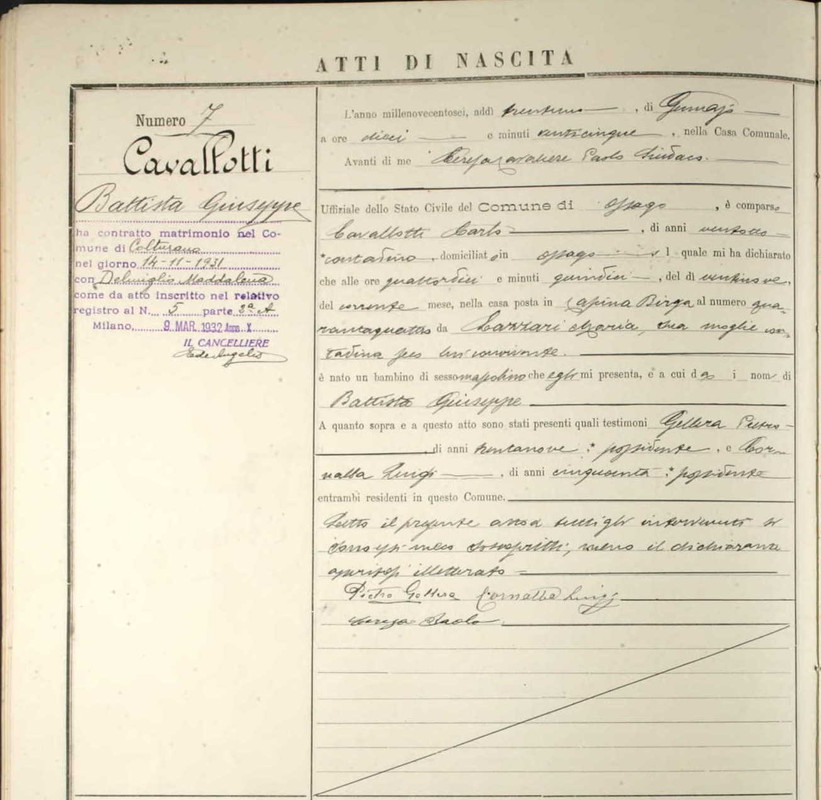 ATTI DI NASCITA
Numero 7
Cavallotti
Battista Giuseppe
ha contratto matrimonio nel Co-
mune di Colturano
nel giorno 14-11-1931
con Maddalena
come da atto inscritto nel relativo
registro al N. 5 parte 2ª A
Milano, 9 MAR. 1932 Anno X
IL CANCELLIERE
L'anno millenovecentosei, addì trentuno, di Gennajo
a ore dieci e minuti venticinque, nella Casa Comunale.
Avanti di me Cavaliere Paolo Sindaco.
Uffiziale dello Stato Civile del Comune di, è comparso
Cavallotti Carlo, di anni ventotto
contadino, domiciliato in, il quale mi ha dichiarato
che alle ore quattordici e minuti quindici, del dì ventinove,
del corrente mese, nella casa posta in Cascina Birga al numero qua-
rantaquattro da Lazzari Maria, sua moglie con-
tadina seco lui convivente.
è nato un bambino di sesso mascolino che egli mi presenta, e a cui dà i nomi di
Battista Giuseppe
A quanto sopra e a questo atto sono stati presenti quali testimoni Gellera Pietro
di anni trentanove, possidente, e Cor-
nalba Luigi, di anni cinquanta, possidente
entrambi residenti in questo Comune.
Letto il presente atto a tutti gli intervenuti si
sono essi meco sottoscritti, meno il dichiarante
illetterato
Pietro Gellera Cornalba Luigi
Paolo